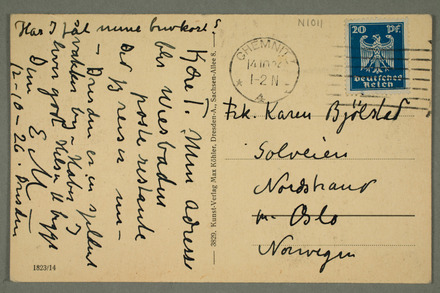 Har I fåt mine brevkort?
Kære I. Min adresse
blir Wiesbaden
poste restante
Det Dresden er en splend
Håber I
har godt. Hilsen II
Din E M
12-10-26. Dresden
3829. Kunst-Verlag Max Köhler, Dresden-A., Sachsen-Allee 8.
1823/14
N1011
CHEMNITZ
1-2 N
20 Pf.
Deutsches
Reich
Frk. Karen Bjølstad
Solveien
Nordstrand
pr. Oslo
Norwegen